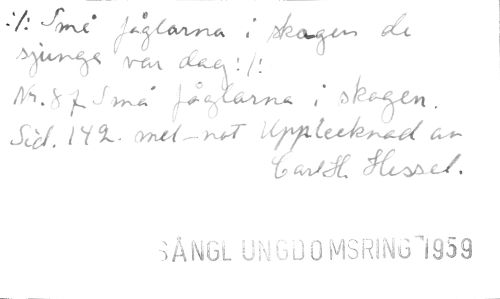 :/: Små fåglarna i skogen de
sjunga var dag :/:
Nr. 87 Små fåglarna i skogen.
Sid. 142. mel-not Upptecknad av
Carl H. Hessel.
SÅNGL UNGDOMSRING 1959